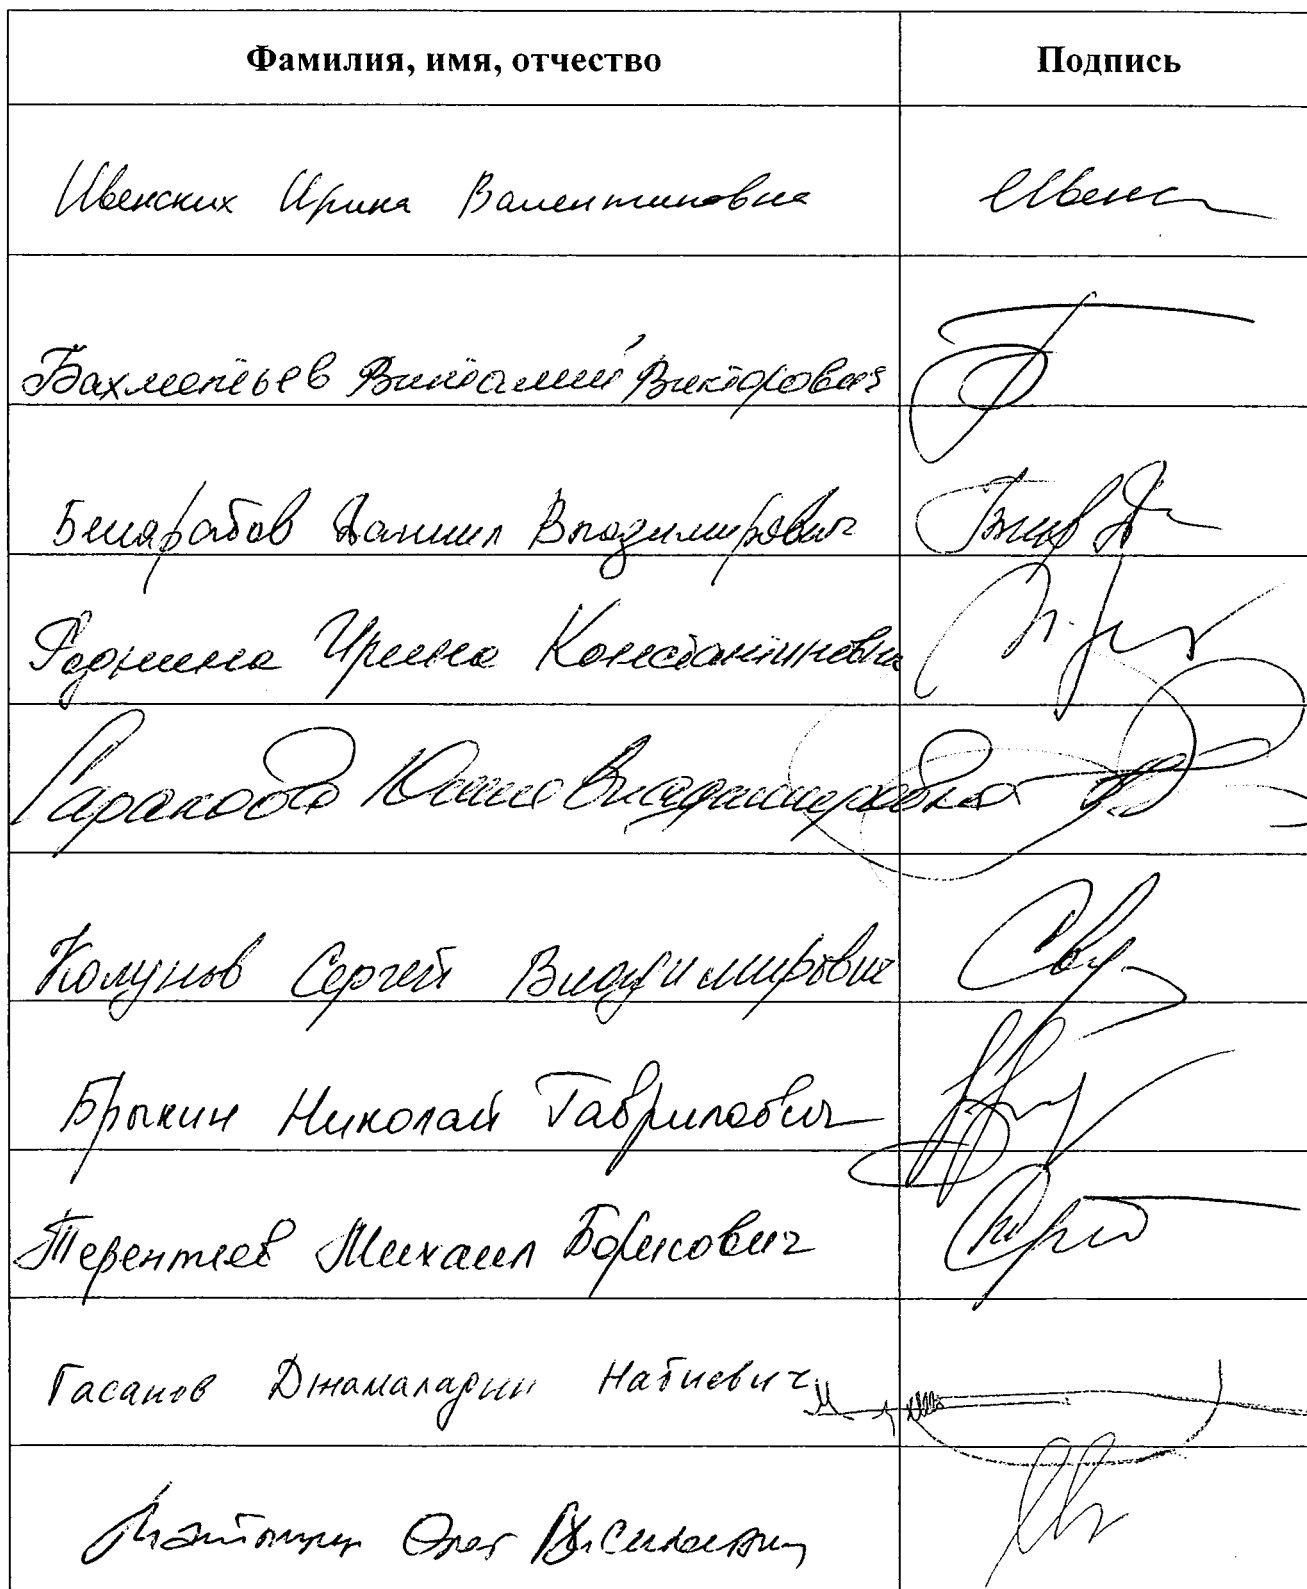 Фамилия, имя, отчество Подпись
Ивенских Ирина Валентиновна Ивенс
Бахметьев Виталий Викторович
Бессарабов Даниил Владимирович
Роднина Ирина Константиновна
Сараноова Юлия Владимировна
Колунов Сергей Владимирович
Брыкин Николай Гаврилович
Терентьев Михаил Борисович
Гасанов Джамаладин Набиевич
Олег Васильевич